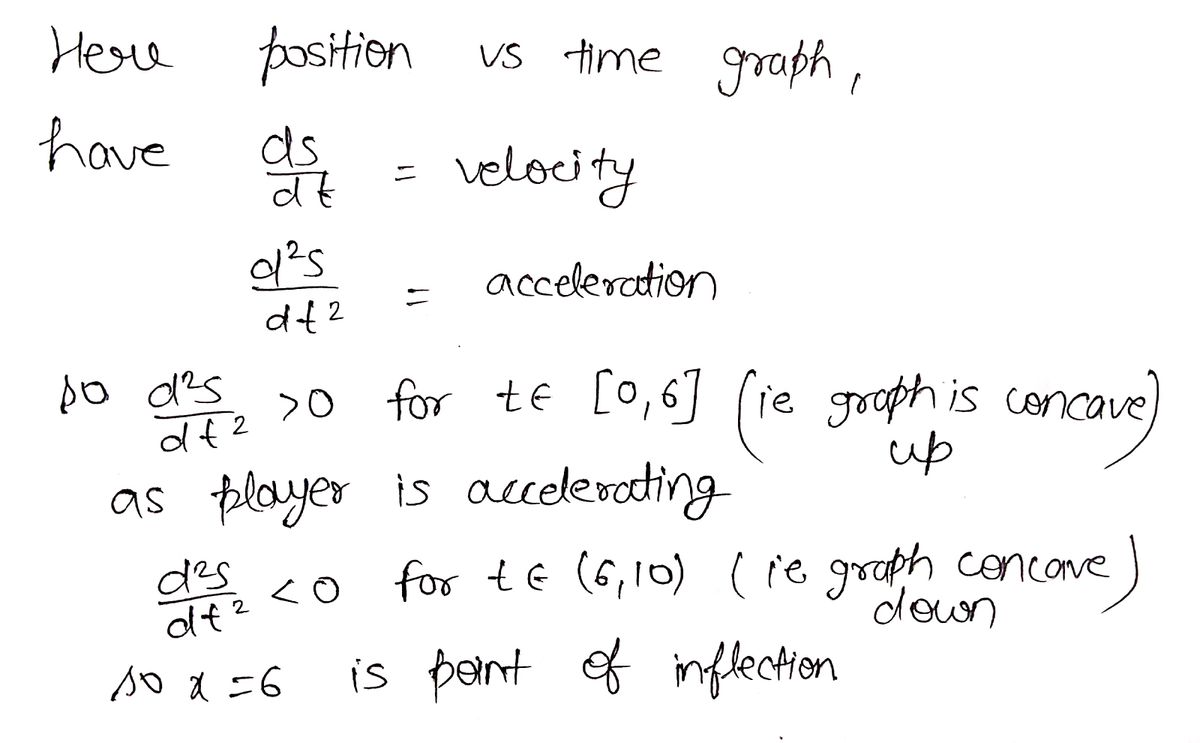 Here position vs time graph,
have ds/dt = velocity
d²s/dt² = acceleration
so d²s/dt² >0 for t∈ [0,6] (ie graph is concave up)
as player is accelerating
d²s/dt² <0 for t∈ (6,10) (ie graph concave down)
so x=6 is point of inflection